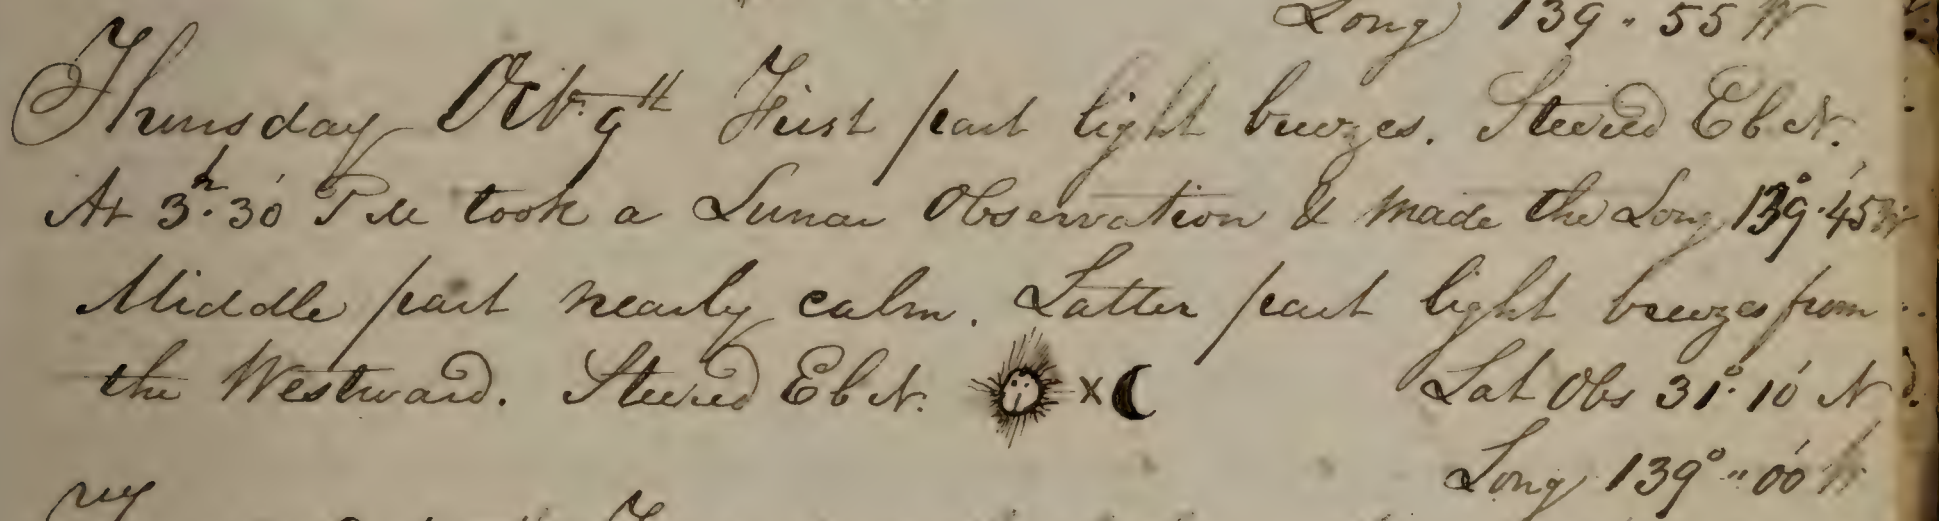 Long 139 " 55 W
Thursday Oct. 9th First part light breezes. Steered E b N.
At 3h. 30' P M took a Lunar Observation & made the Long 139°. 45' W
Middle part nearly calm. Latter part light breezes from
the Westward. Steered E b N. ☀ x ☾ Lat Obs 31°. 10' N.
Long 139° " 00' W